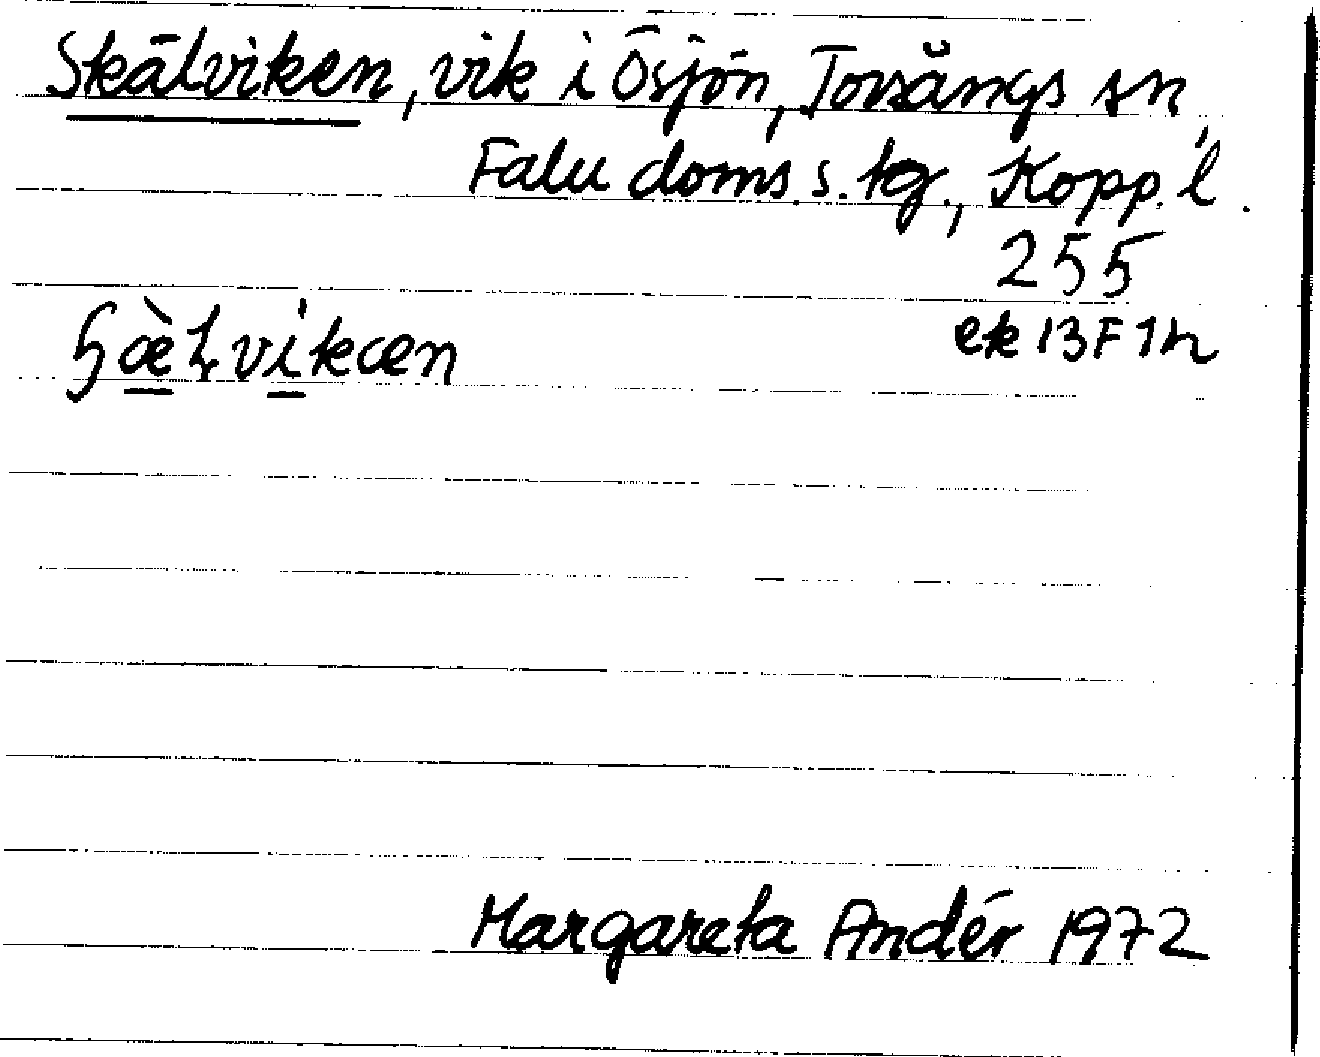 Skälviken, vik i Ösjön, Torsångs sn,
Falu doms. s. tg., Kopp. l.
255
ek 13F 1h
Margareta Andér 1972